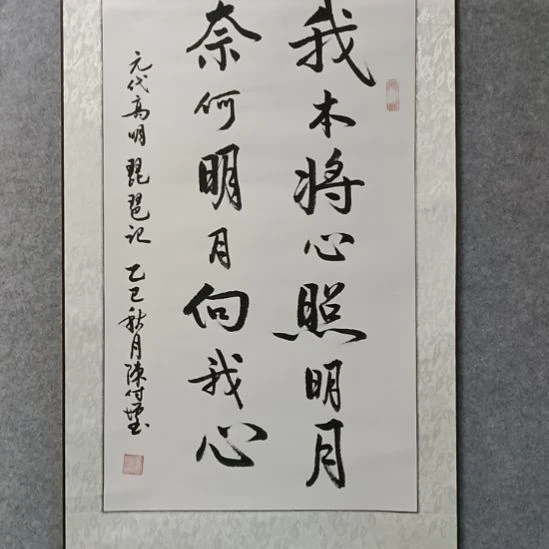 我本将心照明月
奈何明月向我心
元代高明琵琶记 乙巳秋月陳付